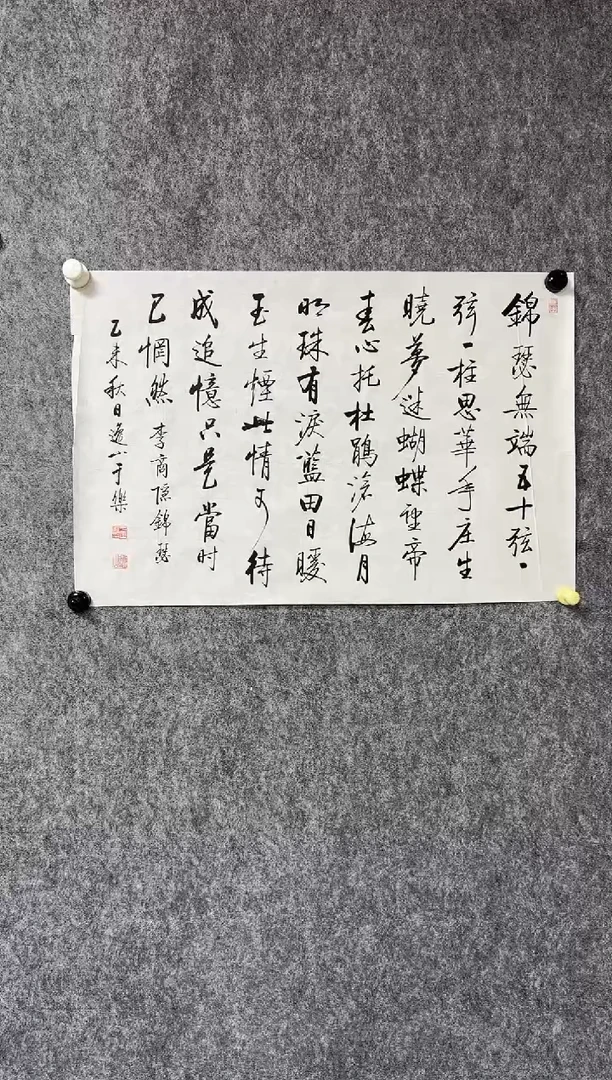 錦瑟無端五十弦一
弦一柱思華年庄生
曉夢迷蝴蝶望帝
春心托杜鵑滄海月
明珠有淚藍田日暖
玉生煙此情可待
成追憶只是當时
已惘然 李商隱錦瑟
乙未秋日逸小于樂